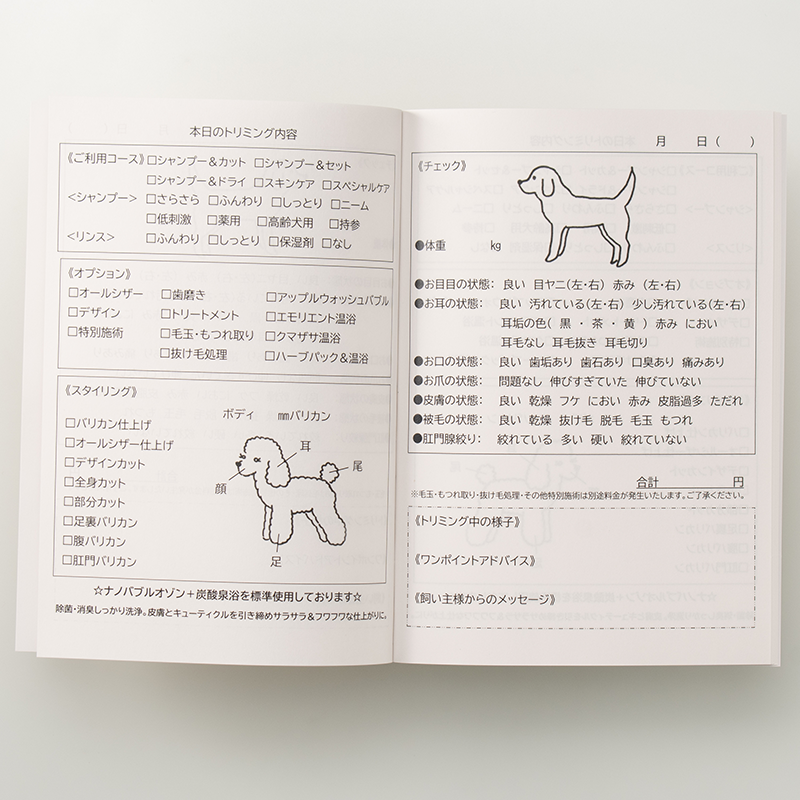 本日のトリミング内容
《ご利用コース》 □シャンプー&カット □シャンプー&セット
□シャンプー&ドライ □スキンケア □スペシャルケア
<シャンプー> □さらさら □ふんわり □しっとり □ニーム
□低刺激 □薬用 □高齢犬用 □持参
<リンス> □ふんわり □しっとり □保湿剤 □なし
《オプション》
□オールシザー □歯磨き □アップルウォッシュバブル
□デザイン □トリートメント □エモリエント温浴
□特別施術 □毛玉・もつれ取り □クマザサ温浴
□抜け毛処理 □ハーブパック&温浴
《スタイリング》
ボディ ㎜バリカン
□バリカン仕上げ
□オールシザー仕上げ
□デザインカット
□全身カット
□部分カット
□足裏バリカン
□腹バリカン
□肛門バリカン
耳
尾
顔
足
☆ナノバブルオゾン+炭酸泉浴を標準使用しております☆
除菌・消臭しっかり洗浄。皮膚とキューティクルを引き締めサラサラ&フワフワな仕上がりに。
月 日( )
《チェック》
●体重 ㎏
●お目目の状態: 良い 目ヤニ(左・右) 赤み (左・右)
●お耳の状態: 良い 汚れている(左・右) 少し汚れている(左・右)
耳垢の色( 黒 ・ 茶 ・ 黄 ) 赤み におい
耳毛なし 耳毛抜き 耳毛切り
●お口の状態: 良い 歯垢あり 歯石あり 口臭あり 痛みあり
●お爪の状態: 問題なし 伸びすぎていた 伸びていない
●皮膚の状態: 良い 乾燥 フケ におい 赤み 皮脂過多 ただれ
●被毛の状態: 良い 乾燥 抜け毛 脱毛 毛玉 もつれ
●肛門腺絞り: 絞れている 多い 硬い 絞れていない
合計 円
※毛玉・もつれ取り・抜け毛処理・その他特別施術は別途料金が発生いたします。ご了承ください。
《トリミング中の様子》
《ワンポイントアドバイス》
《飼い主様からのメッセージ》